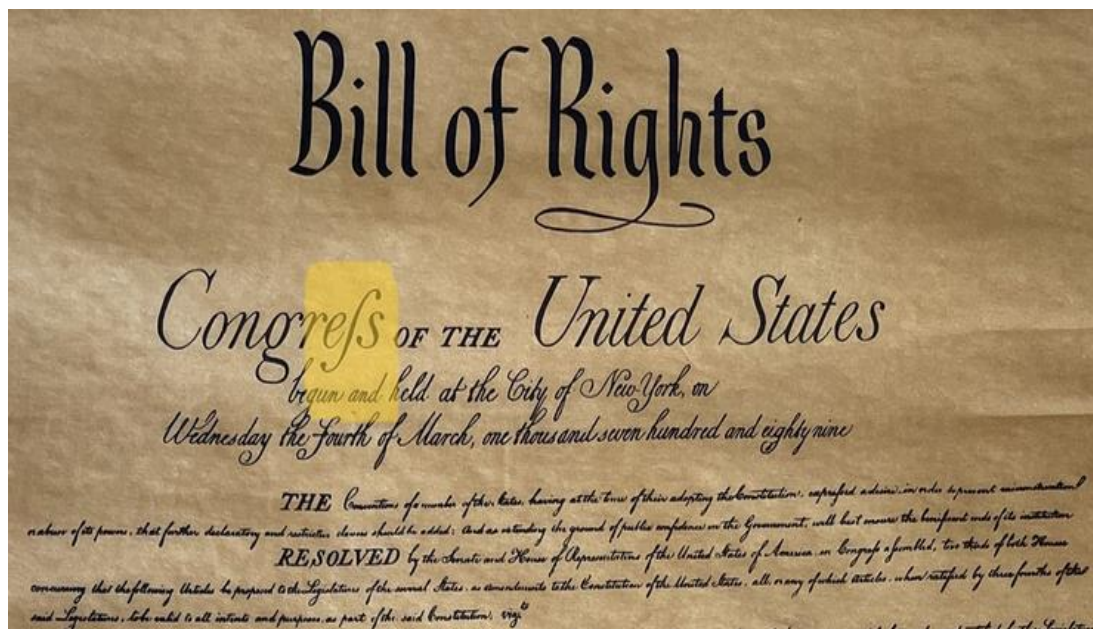 Bill of Rights
Congreſs OF THE United States
begun and held at the City of New-York, on
Wednesday the Fourth of March, one thousand seven hundred and eighty nine
THE Conventions of a number of the States, having at the time of their adopting the Constitution, expreſsed a desire, in order to prevent
or abuse of its powers, that further declaratory and restrictive clauses should be added: And as extending the ground of public confidence in the Government, will best ensure the beneficent ends of its institution
RESOLVED by the Senate and House of Representatives of the United States of America, in Congreſs aſsembled, two thirds of both Houses
concurring that the following Articles be proposed to the Legislatures of the several States, as amendments to the Constitution of the United States, all, or any of which Articles, when ratified by three fourths of the
said Legislatures, to be valid to all intents and purposes, as part of the said Constitution; vizt